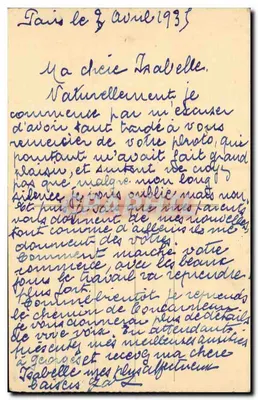 Paris le 3 Avril 1935
Ma chère Isabelle.
Naturellement, je
commence par m'excuser
d'avoir tant tardé à vous
remercier de votre photo, qui
pourtant m'avait fait grand
plaisir, et surtout ne croyez
pas que malgré mon long
silence je vous oublie mais non
parents
vous donnent de mes nouvelles
tout comme d'ailleurs ils me
donnent des vôtres.
Comment marche votre
commerce, avec les beaux
jours le travail va reprendre
plus fort.
je reprends
le chemin de Concarneau
je vous donnerai plus de détails
de vive voix. En attendant
présentez mes meilleures amitiés
à Georges et recevez ma chère
Isabelle mes plus affectueux
baisers